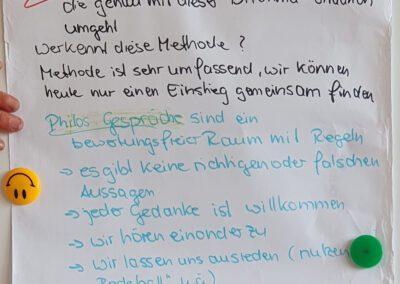 die genau mit dieser
umgeht
wer kennt diese Methode?
Methode ist sehr umfassend, wir können
heute nur einen Einstieg gemeinsam finden
Philos. Gespräche sind ein
bewertungsfreier Raum mit Regeln
→ es gibt keine richtigen oder falschen
Aussagen
→ jeder Gedanke ist willkommen
→ wir hören einander zu
→ wir lassen uns ausreden (nutzen
"Redeball" u.ä)